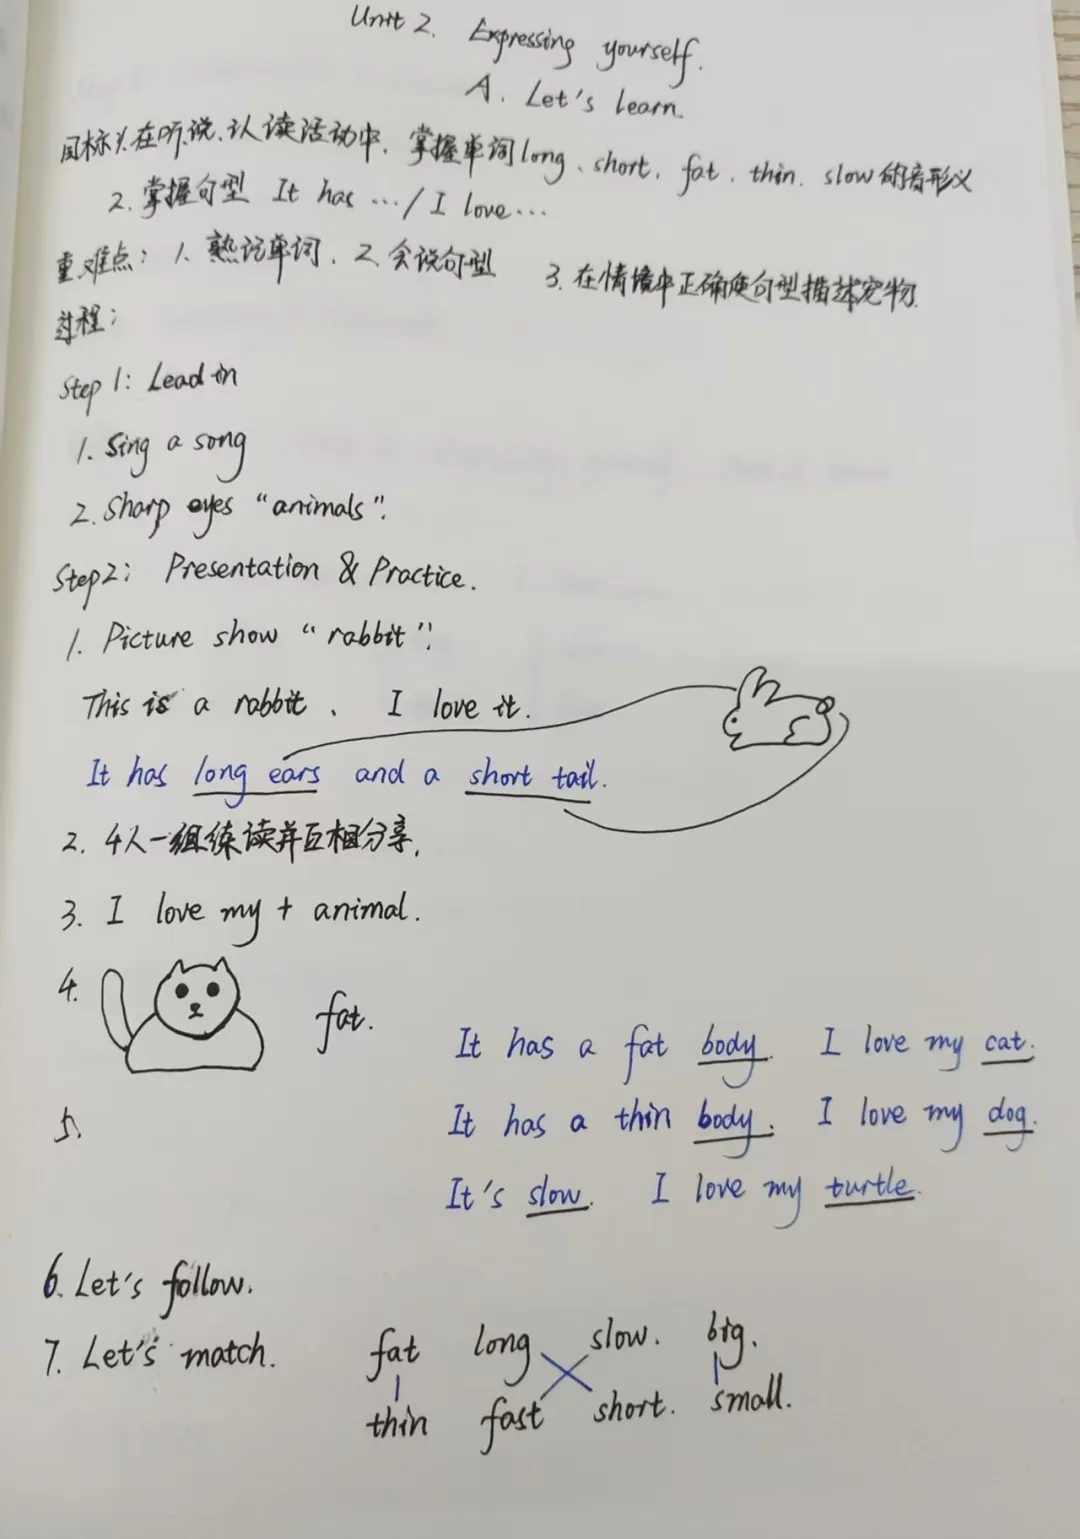 Unit 2. Expressing yourself.
A. Let's learn.
目标:1.在听、说、认读活动中,掌握单词long、short, fat, thin, slow的音形义
2. 掌握句型 It has .../ I love...
重难点: 1. 熟记单词, 2. 会说句型 3. 在情境中正确使句型描述宠物.
过程:
Step 1: Lead in
1. Sing a song
2. Sharp eyes "animals".
Step2: Presentation & Practice.
1. Picture show "rabbit":
This is a rabbit. I love it.
It has long ears and a short tail.
2. 4人一组练读并互相分享.
3. I love my + animal.
4. fat.
It has a fat body. I love my cat.
5. It has a thin body. I love my dog.
It's slow. I love my turtle.
6. Let's follow.
7. Let's match. fat long slow. big.
thin fast short. small.